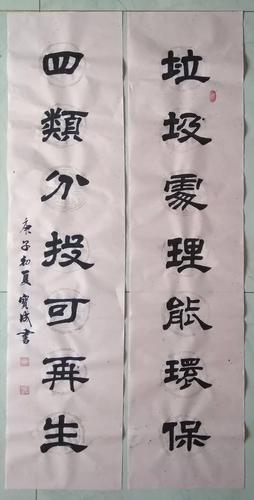 垃圾處理能環保
四類分投可再生
庚子初夏寶成書